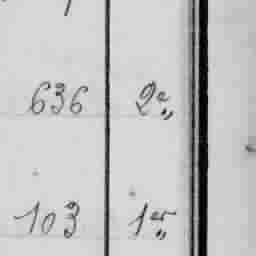 636 2e„
103 1er„